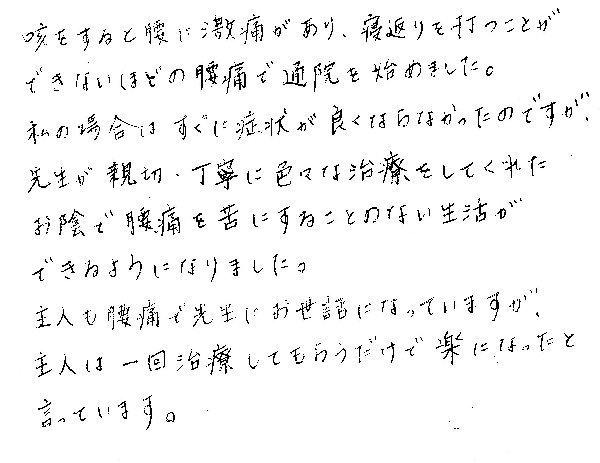 咳をすると腰に激痛があり、寝返りを打つことが
できないほどの腰痛で通院を始めました。
私の場合はすぐに症状が良くならなかったのですが、
先生が親切・丁寧に色々な治療をしてくれた
お陰で腰痛を苦にすることのない生活が
できるようになりました。
主人も腰痛で先生にお世話になっていますが、
主人は一回治療してもらうだけで楽になったと
言っています。